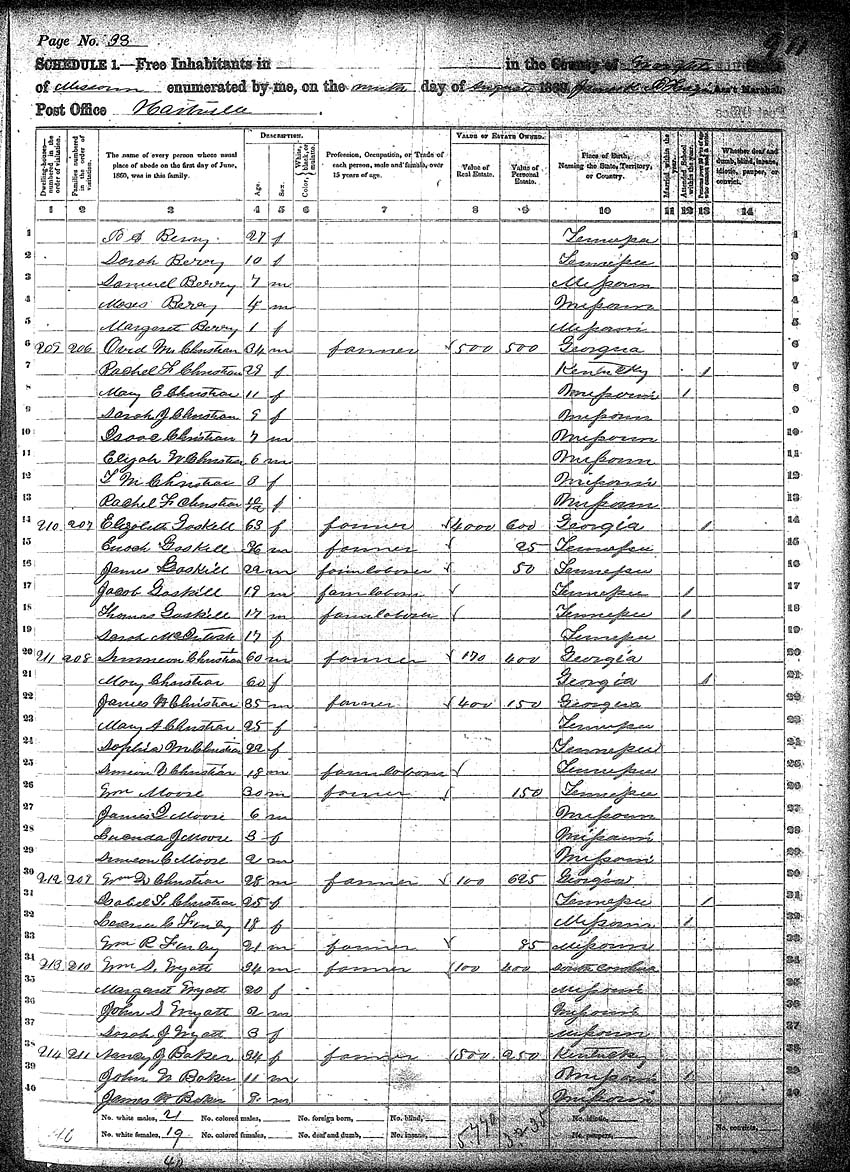 Page No. 33
SCHEDULE 1.—Free Inhabitants in in the County of
of Missouri enumerated by me, on the ninth day of August 1860. Ass't Marshal.
Post Office Hartville
Dwelling-houses—numbered in the order of visitation.
Families numbered in the order of visitation.
The name of every person whose usual place of abode on the first day of June, 1860, was in this family.
DESCRIPTION.
Age.
Sex.
Color, White, black, or mulatto.
Profession, Occupation, or Trade of each person, male and female, over 15 years of age.
VALUE OF ESTATE OWNED.
Value of Real Estate.
Value of Personal Estate.
Place of Birth, Naming the State, Territory, or Country.
Married within the year.
Attended School within the year.
Whether deaf and dumb, blind, insane, idiotic, pauper, or convict.
1 2 3 4 5 6 7 8 9 10 11 12 13 14
1 Berry 27 f Tennessee 1
2 Sarah Berry 10 f Tennessee 2
3 Samuel Berry 7 m Missouri 3
4 Moses Berry 4 m Missouri 4
5 Margaret Berry 1 f Missouri 5
6 209 206 Ovid M Christian 34 m farmer 500 500 Georgia 6
7 Rachel F Christian 29 f Kentucky 1 7
8 Mary E Christian 11 f Missouri 1 8
9 Sarah J Christian 9 f Missouri 9
10 Isaac Christian 7 m Missouri 10
11 Elijah W Christian 6 m Missouri 11
12 Christian 3 f Missouri 12
13 Rachel F Christian 10/12 f Missouri 13
14 210 207 Elizabeth Gaskill 63 f farmer 4000 600 Georgia 1 14
15 Enoch Gaskill 26 m farmer 25 Tennessee 15
16 James Gaskill 22 m farm laborer 50 Tennessee 16
17 Jacob Gaskill 19 m farm laborer Tennessee 1 17
18 Thomas Gaskill 17 m farm laborer Tennessee 1 18
19 Sarah McIntosh 17 f Tennessee 19
20 211 208 Simmeon Christian 60 m farmer 170 400 Georgia 20
21 Mary Christian 60 f Georgia 1 21
22 James Christian 35 m farmer 400 150 Georgia 22
23 Mary A Christian 25 f Tennessee 23
24 Sophia M Christian 22 f Tennessee 24
25 Simeon Christian 18 m farm laborer Tennessee 25
26 Wm Moore 30 m farmer 150 Tennessee 26
27 James Moore 6 m Missouri 27
28 Luvenda J Moore 3 f Missouri 28
29 Simeon C Moore 2 m Missouri 29
30 212 209 Wm Christian 28 m farmer 100 625 Georgia 30
31 Isabel F Christian 25 f Tennessee 1 31
32 Finley 18 f Missouri 1 32
33 Wm R Finley 21 m farmer 85 Missouri 33
34 213 210 Wm S Wyatt 24 m farmer 100 400 South Carolina 34
35 Margaret Wyatt 20 f Missouri 35
36 John S Wyatt 2 m Missouri 36
37 Sarah J Wyatt 3 f Missouri 37
38 214 211 Nancy J Baker 34 f farmer 1500 250 Kentucky 38
39 John Baker 11 m Missouri 1 39
40 James W Baker 8 m Missouri 40
No. white males, 21 No. colored males, No. foreign born, No. blind, No. idiotic,
No. white females, 19 No. colored females, No. deaf and dumb, No. insane, No. paupers, No. convicts,
40